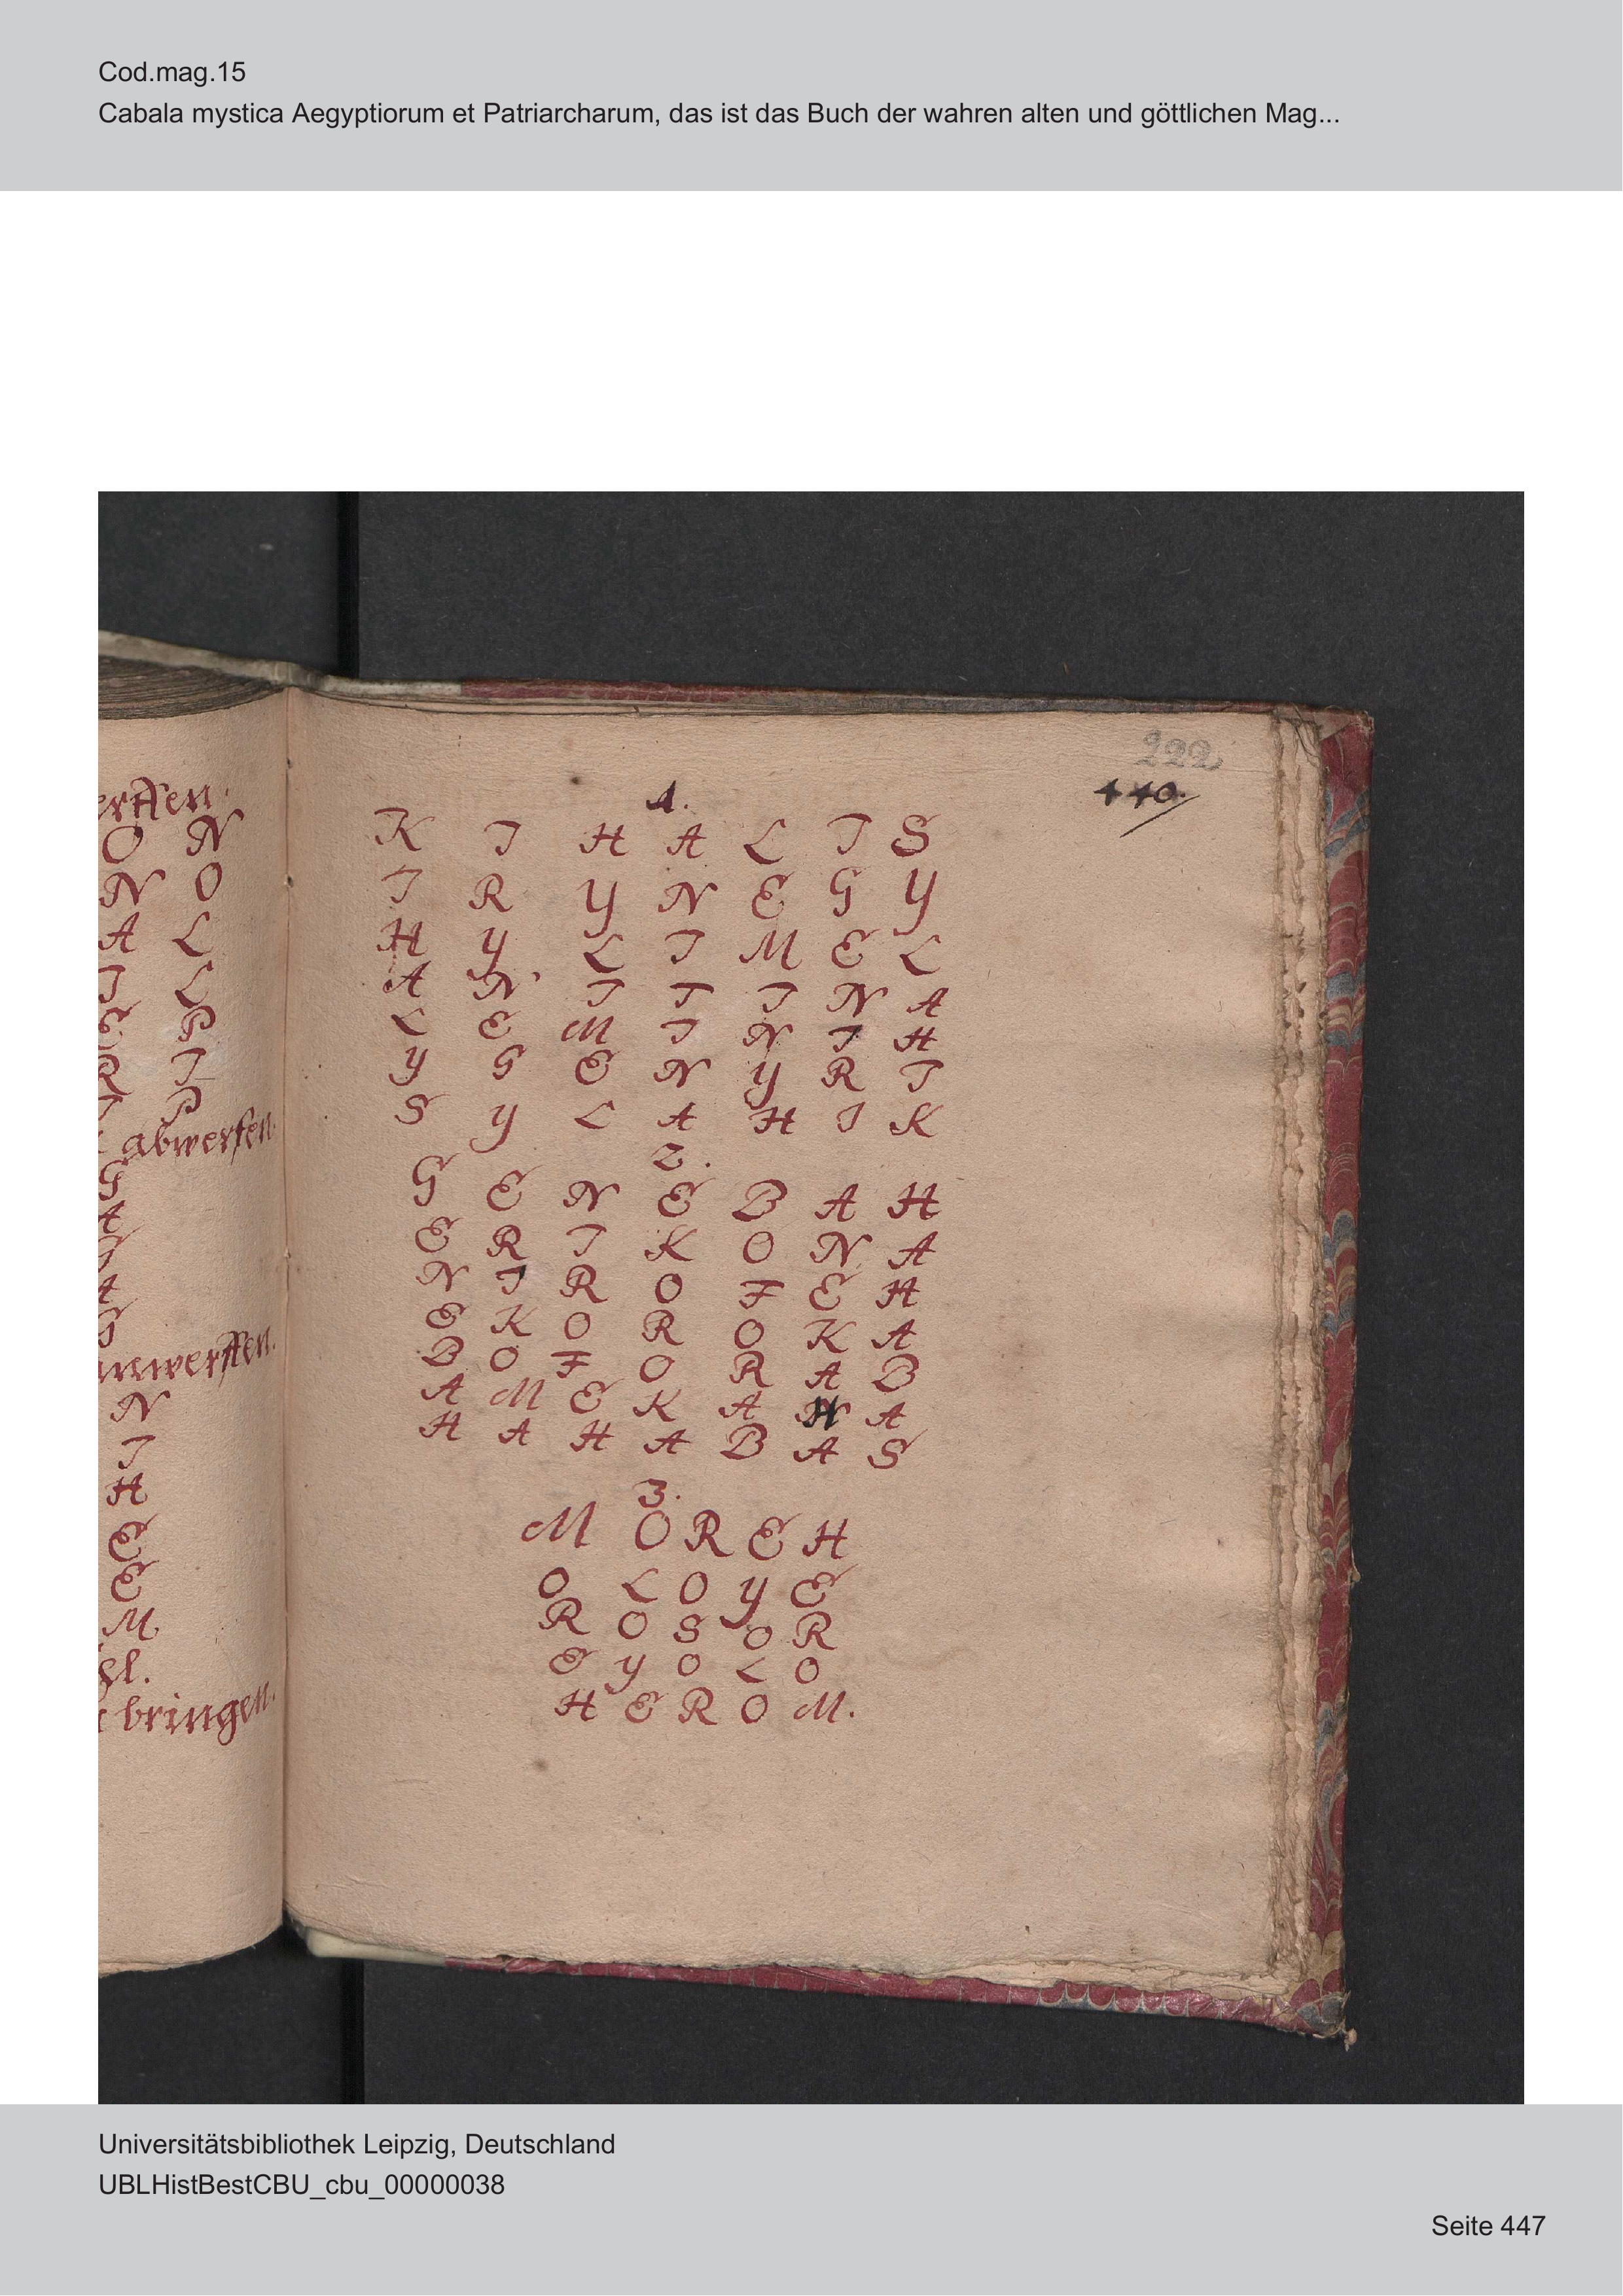 Cod.mag.15
Cabala mystica Aegyptiorum et Patriarcharum, das ist das Buch der wahren alten und göttlichen Mag...
O N
N O
A L
I L
E P
R I
P
abwerfen
G
A
A
N
I
H
E
E
M
bringen.
222
440.
1.
K I H A L I S
I R Y N E G Y
H Y L I M E L
A N I T I N A
L E M I N I H
Y G E N Y R I
S Y L A H I K
2.
G E N E B A H
E R I K O N A
N I R O F E H
E K O R O K A
B O F O R A B
A M E K A H A
H A H A B A S
3.
M O R E H
O L O Y E
R O S O R
E Y O L O
H E R O M.
Universitätsbibliothek Leipzig, Deutschland
UBLHistBestCBU_cbu_00000038
Seite 447